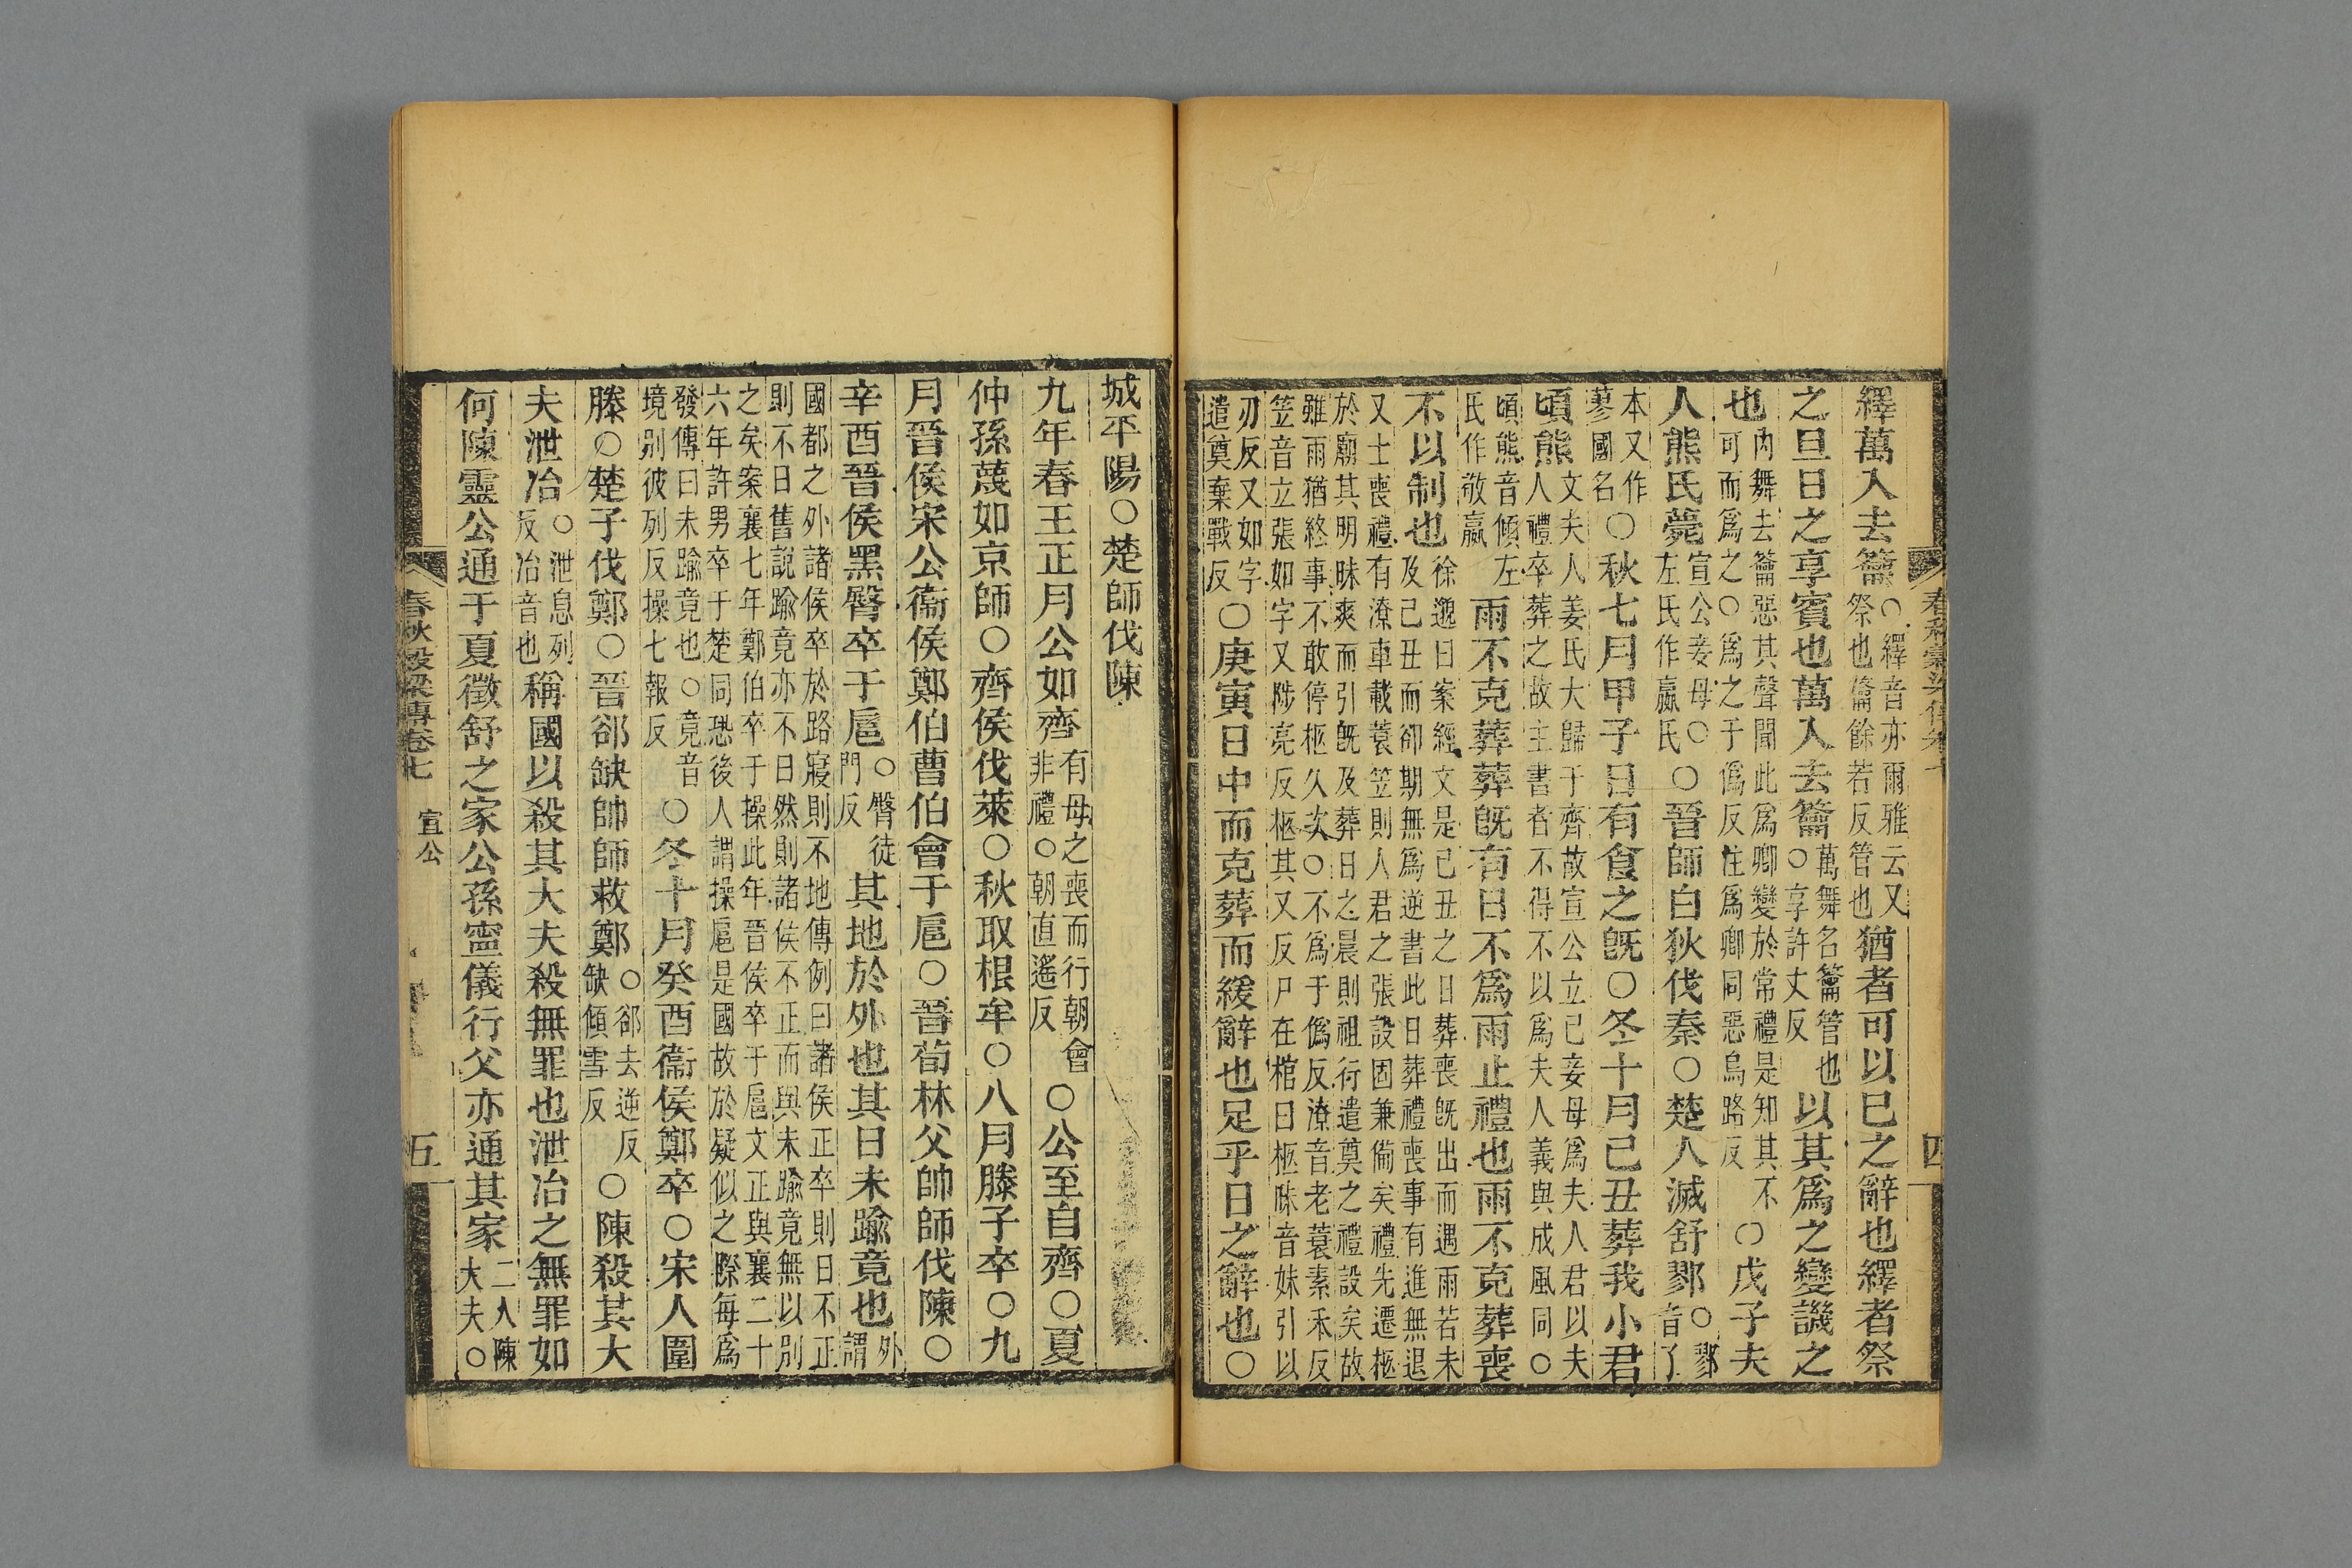 繹萬入去籥○繹音亦爾雅云又祭也籥餘若反管也猶者可以已之辭也繹者祭
之旦日之享賓也萬入去籥萬舞名籥管也○享許丈反以其爲之變譏之
也内舞去籥惡其聲聞此爲卿變於常禮是知其不可而爲之○爲之于僞反注爲卿同惡烏路反○戊子夫
人熊氏薨宣公妾母○左氏作嬴氏○晉師白狄伐秦○楚人滅舒鄝○鄝音了
本又作蓼國名○秋七月甲子日有食之既○冬十月己丑葬我小君
頃熊文夫人姜氏大歸于齊故宣公立己妾母爲夫人君以夫人禮卒葬之故主書者不得不以爲夫人義與成風同○
頃熊音傾左氏作敬嬴雨不克葬葬既有日不爲雨止禮也雨不克葬喪
不以制也徐邈曰案經文是己丑之日葬喪既出而遇雨若未及己丑而卻期無爲逆書此日葬禮喪事有進無退
又士喪禮有潦車載蓑笠則人君之張設固兼備矣禮先遷柩於廟其明昧爽而引既及葬日之晨則祖行遣奠之禮設矣故
雖雨猶終事不敢停柩久次○不爲于僞反潦音老蓑素禾反笠音立張如字又陟亮反柩其又反尸在棺曰柩昧音妹引以
刃反又如字遣奠棄戰反○庚寅日中而克葬而緩辭也足乎日之辭也○
四
城平陽○楚師伐陳
九年春王正月公如齊有母之喪而行朝會非禮○朝直遙反○公至自齊○夏
仲孫蔑如京師○齊侯伐萊○秋取根牟○八月滕子卒○九
月晉侯宋公衞侯鄭伯曹伯會于扈○晉荀林父帥師伐陳○
辛酉晉侯黑臀卒于扈○臀徒門反其地於外也其日未踰竟也外謂
國都之外諸侯卒於路寢則不地傳例曰諸侯正卒則日不正則不日舊説踰竟亦不日然則諸侯不正而與未踰竟無以別
之矣案襄七年鄭伯卒于操此年晉侯卒于扈文正與襄二十六年許男卒于楚同恐後人謂操扈是國故於疑似之際每爲
發傳曰未踰竟也○竟音境別彼列反操七報反○冬十月癸酉衞侯鄭卒○宋人圍
滕○楚子伐鄭○晉郤缺帥師救鄭○郤去逆反缺傾雪反○陳殺其大
夫泄冶○泄息列反冶音也稱國以殺其大夫殺無罪也泄冶之無罪如
何陳靈公通于夏徵舒之家公孫寍儀行父亦通其家二人陳大夫○
春秋穀梁傳卷七 宣公 五